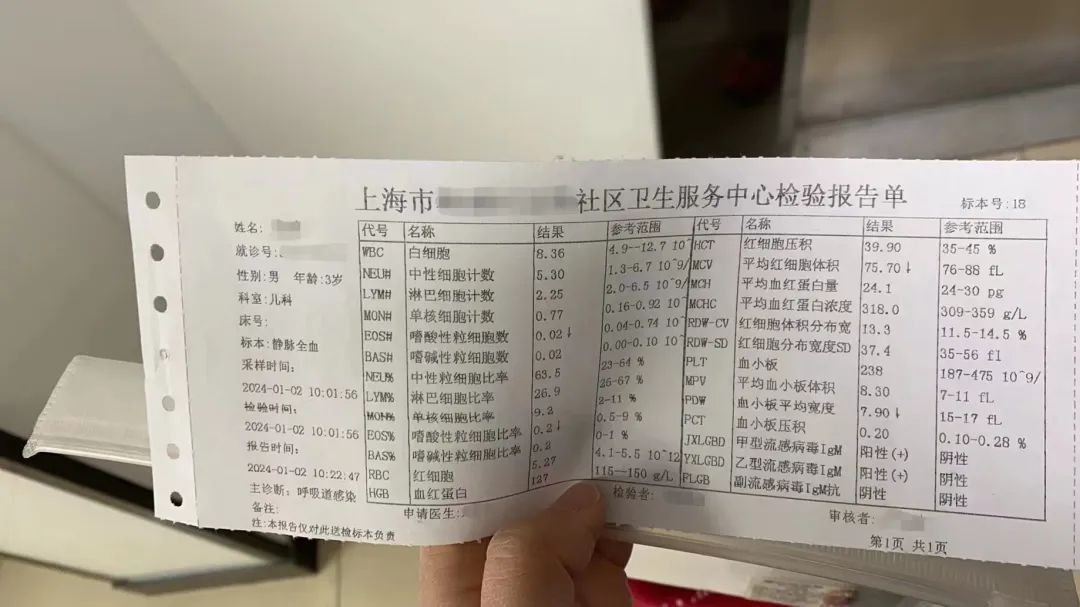 上海市 社区卫生服务中心检验报告单
标本号:18
姓名:
就诊号:
性别:男 年龄:3岁
科室:儿科
床号:
标本:静脉全血
采样时间:
2024-01-02 10:01:56
检验时间:
2024-01-02 10:01:56
报告时间:
2024-01-02 10:22:47
主诊断:呼吸道感染
备注:
注:本报告仅对此送检标本负责
代号 名称 结果 参考范围 代号 名称 结果 参考范围
WBC 白细胞 8.36 4.9--12.7 10^ HCT 红细胞压积 39.90 35-45 %
NEU# 中性细胞计数 5.30 1.3-6.7 10^9/ MCV 平均红细胞体积 75.70↓ 76-88 fL
LYM# 淋巴细胞计数 2.25 2.0-6.5 10^9/ MCH 平均血红蛋白量 24.1 24-30 pg
MON# 单核细胞计数 0.77 0.16-0.92 10^ MCHC 平均血红蛋白浓度 318.0 309-359 g/L
EOS# 嗜酸性粒细胞数 0.02↓ 0.04-0.74 10^ RDW-CV 红细胞体积分布宽 13.3 11.5-14.5 %
BAS# 嗜碱性粒细胞数 0.02 0.00-0.10 10^ RDW-SD 红细胞分布宽度SD 37.4 35-56 fl
NEU% 中性粒细胞比率 63.5 23-64 % PLT 血小板 238 187-475 10^9/
LYM% 淋巴细胞比率 26.9 26-67 % MPV 平均血小板体积 8.30 7-11 fL
MON% 单核细胞比率 9.2 2-11 % PDW 血小板平均宽度 7.90↓ 15-17 fL
EOS% 嗜酸性粒细胞比率 0.2↓ 0.5-9 % PCT 血小板压积 0.20 0.10-0.28 %
BAS% 嗜碱性粒细胞比率 0.2 0-1 % JXLGBD 甲型流感病毒IgM 阳性(+) 阴性
RBC 红细胞 5.27 4.1-5.5 10^12 YXLGBD 乙型流感病毒IgM 阳性(+) 阴性
HGB 血红蛋白 127 115--150 g/L FLGB 副流感病毒IgM抗 阴性 阴性
申请医生: 检验者: 审核者:
第1页 共1页